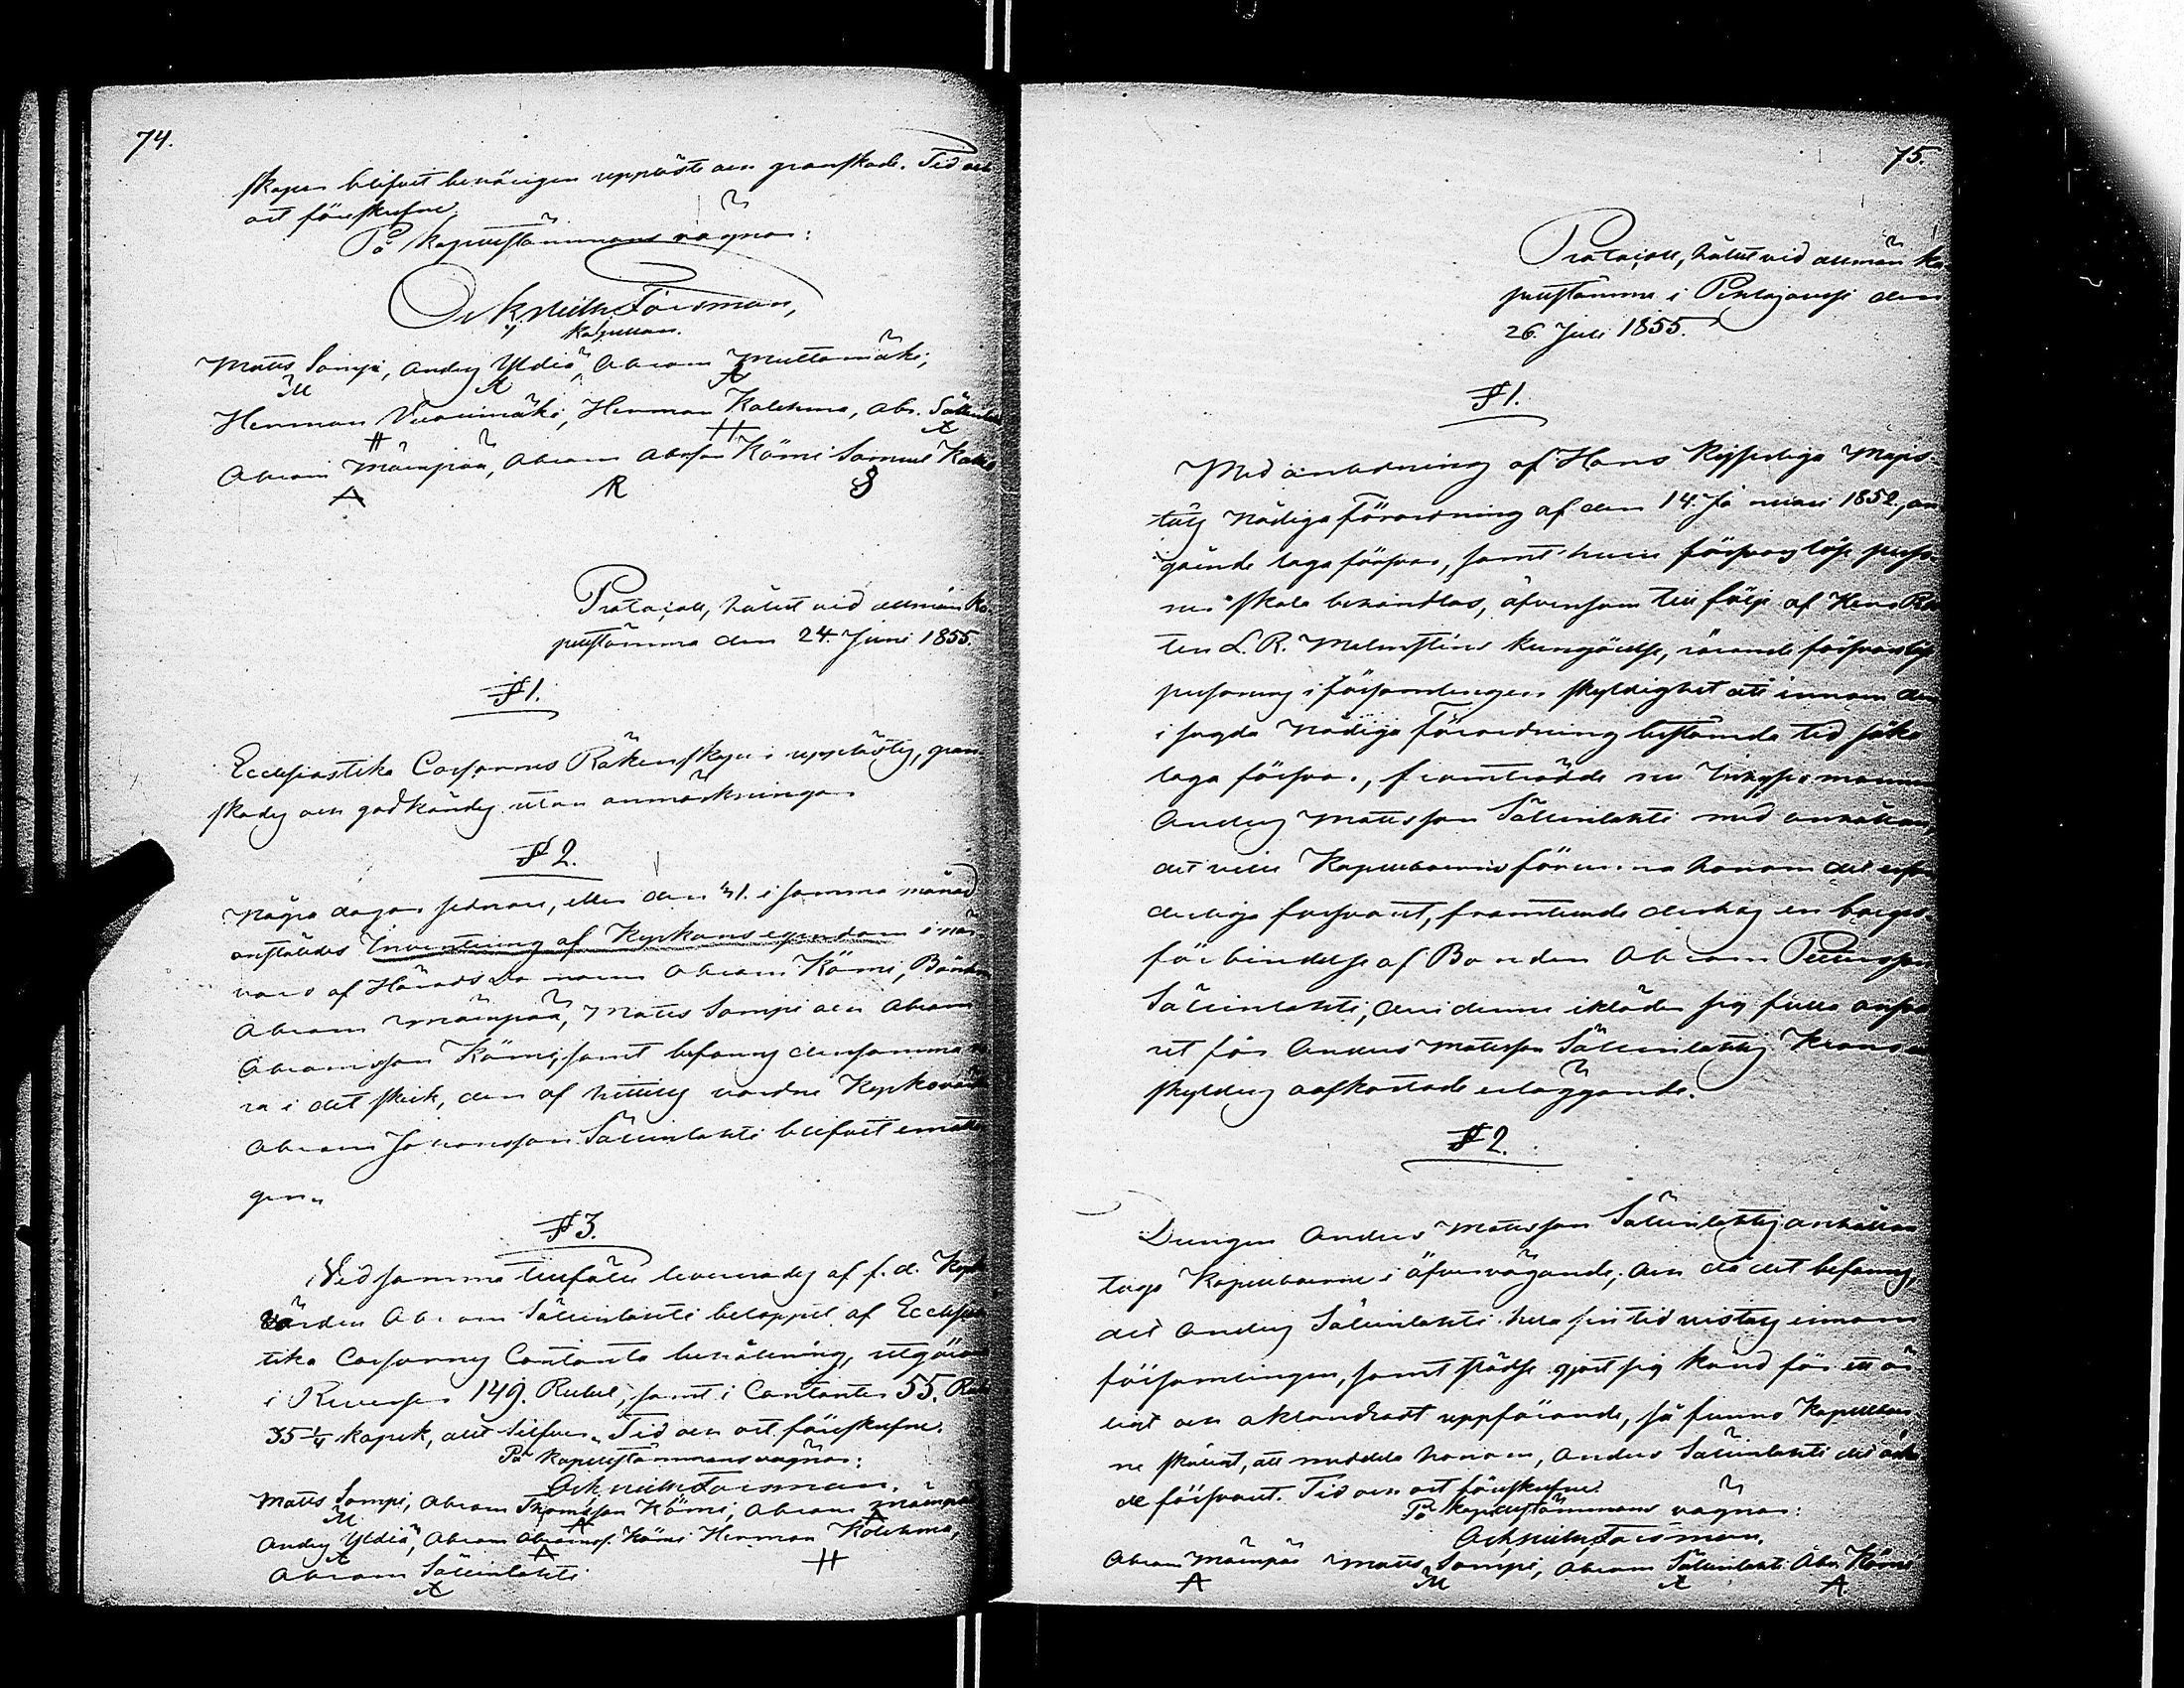 74.
skaper blifvit benäigen uppläste och granskade. Tid och
ort föreskrefne.
På Kapellstämmans vägnar:
Forsman,
Kapellan.
Matts Sompi, Anders Yldiä, Abram Muttomäki,
M A A
Herman Vuorimäki, Herman Kolehma, Abr. Sällinlahti
H H A
Abram Mäenpää, Abram Abrsson Kömi Samuel
A R S
Protocoll, hållit vid allmän Ka-
pellstämma den 24. Juni 1855.
§ 1.
Ecclesiastika Cassornas Räkenskaper upplästes, gran-
skades och godkändes utan anmärkningar
§ 2.
Några dagar sednare, eller den 31. i samma månad
anställdes Inventering af Kyrkans egendom i när-
varo af Häradsdomaren Abram Kömi, Bönderne
Abram Mäenpää, Matts Sompi och Abram
Abramsson Kömi, samt befanns densamma va-
ra i det skick, den af hittills varande Kyrkovärd
Abram Johansson Sällinlahti blifvit emotta-
gen.
§ 3.
Vid samma tillfälle levererades af f. d. Kyrko
värden Abram Sällinlahti beloppet af Ecclesias-
tika Cassornas Contanta behållning, utgörande
i Reverser 149. Rubel, samt i Contanter 55. Rub
35 1/4 Kopek, allt Silfver. Tid och ort förskrefne.
På Kapellstämmans vägnar:
Forsman.
Matts Sompi, Abram Thomasson Kömi, Abram Mäenpää
M A A
Anders Yldiä, Abram Abramss. Kömi Herman Kolehma,
A A H
Abram Sällinlahti
A
75.
Protocoll, hållit vid allmän Ka-
pellstämma i Perhojoensi den
26. Juli 1855.
§ 1.
Med anledning af Hans Kejserliga Majes-
täts Nådiga Förordning af den 14. Januari 1852, an-
gående laga försvar, samt huru försvarslöse perso-
ner skola behandlas, äfvensom till följe af Herr
ten L. R. Malmsténs kungörelse, rörande försvarslöse
personers i församlingen skyldighet att innom den
i sagda Nådiga Förordning bestämda tid söka
laga försvar, framträdde nu Inhyses mannen
Anders Mattsson Sällinlahti med anhållan,
det ville Kapellboerne förunna honom det erfor-
derliga försvaret, framteende derhos en borgens
förbindelse af Bonden Abram Pettersson
Sällinlahti, deri denne ikläder sig fulla ansva-
ret för Anders Mattsson Sällinlahtis Krono ut-
skylders erläggande.
§ 2.
Drengen Anders Mattsson Sällinlahtis anhållan
togo Kapellboerne i öfvervägande; och då det befanns,
det Anders Sällinlahti hela sin tid vistats innom
församlingen, samt städse gjort sig känd för ett är-
ligt och oklandradt uppförande, så funno Kapellboer-
ne skäligt, att meddela honom, Anders Sällinlahti det äska-
de försvaret. Tid och ort förskrefne.
På Kapellstämmans vägnar:
Forsman.
Abram Mäenpää Matts Sompi, Abram Sällinlahti Abr. Kömi
A M A A.